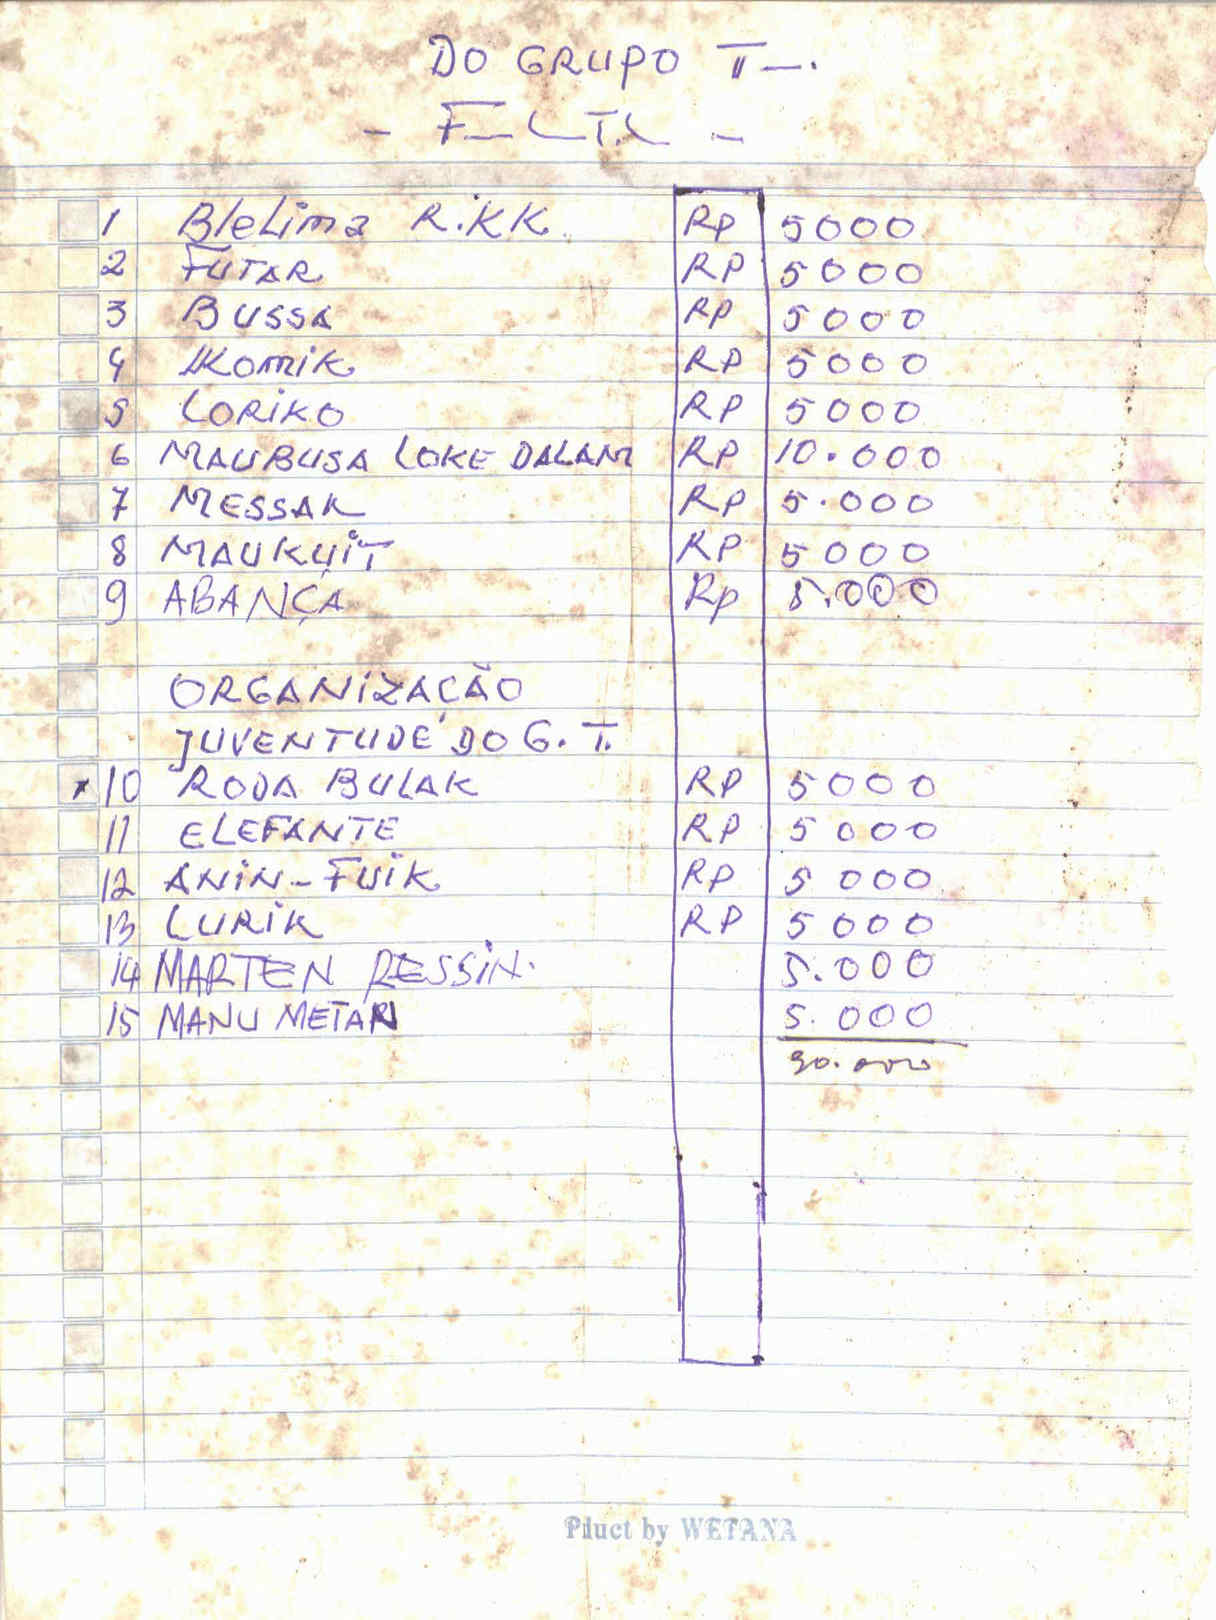 DO GRUPO T—.
- F—LT.L -
1 B/eLima R.KK Rp 5000
2 FUTAR RP 5000
3 BUSSA RP 5000
4 Komik RP 5000
5 LORiKO RP 5000
6 MAUBUSA LOKE DALAM RP 10.000
7 MESSAK RP 5.000
8 MAUKUiT RP 5000
9 ABANÇA Rp 5.000
ORGANiZAÇÃO
JUVENTUDE DO G. T.
10 RODA BULAK RP 5000
11 ELEFANTE RP 5000
12 ANiN-FUiK RP 5000
13 LURiK RP 5000
14 MARTEN RESSiN. 5.000
15 MANU METAN 5.000
90.000
Pduct by WETANA